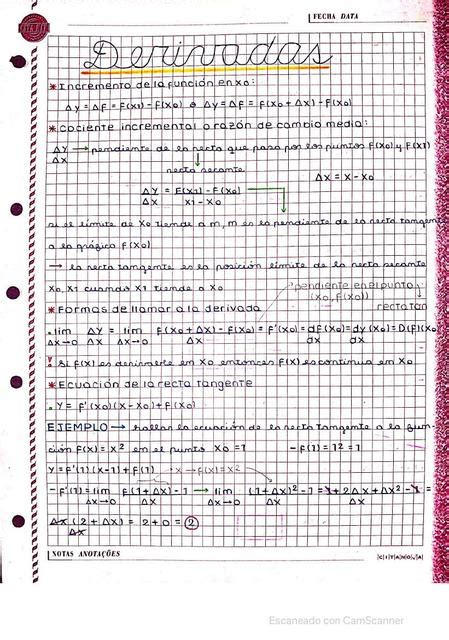 FECHA DATA
Derivadas
* Incremento de la función en x0:
Δy = ΔF = F(x1) - F(x0) ó Δy = ΔF = F(x0 + Δx) - F(x0)
* cociente incremental o razón de cambio media:
Δy/Δx → pendiente de la recta que pasa por los puntos F(x0) y F(x1)
↓
recta secante
Δx = x - x0
Δy/Δx = F(x1) - F(x0)/x1 - x0
si el límite de x0 tiende a m, m es la pendiente de la recta tangente
a la gráfica F(x0)
→ la recta tangente es la posición límite de la recta secante
x0, x1 cuando x1 tiende a x0
pendiente en el punto
(x0, F(x0))
* Formas de llamar a la derivada
recta tan
. lim Δx→0 Δy/Δx = lim Δx→0 F(x0 + Δx) - F(x0)/Δx = F'(x0) = dF/dx (x0) = dy/dx (x0) = D(F)(x0)
! Si F(x) es derivable en x0 entonces F(x) es continua en x0
* Ecuación de la recta tangente
. Y = F'(x0)(x - x0) + F(x0)
EJEMPLO → hallar la ecuación de la recta tangente a la fun-
ción F(x) = x² en el punto x0 = 1 - F(1) = 1² = 1
Y = F'(1)(x-1) + F(1) → x → F(x) = x²
- F'(1) = lim Δx→0 F(1+Δx) - 1/Δx → lim Δx→0 (1+Δx)² - 1/Δx = 1 + 2Δx + Δx² - 1 =
Δx (2 + Δx)/Δx = 2 + 0 = 2
NOTAS ANOTAÇÕES
CITANOVA
Escaneado con CamScanner